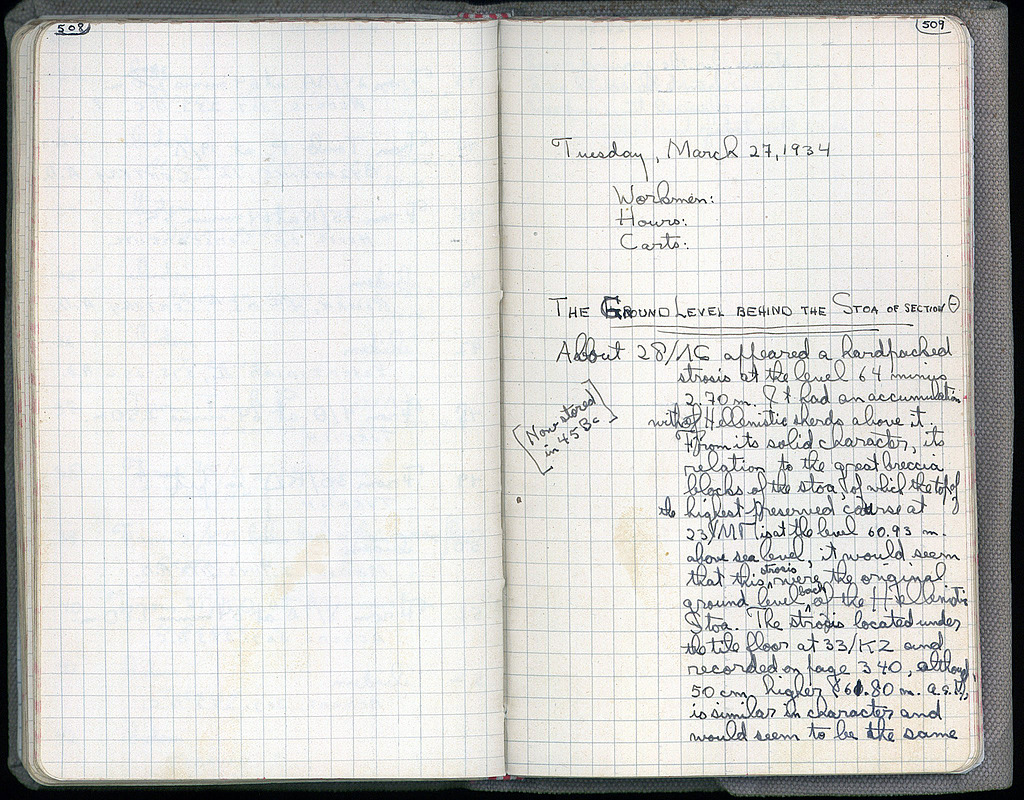 508
509
Tuesday, March 27, 1934
Workmen:
Hours:
Carts:
THE GROUND LEVEL BEHIND THE STOA OF SECTION Θ
About 28/ΛC appeared a hardpacked
strosis at the level 64 minus
2.70 m. It had an accumulation
with of Hellenistic sherds above it.
[Now stored
in 45 Bc]
From its solid character, its
relation to the great breccia
blocks of the stoa, of which the top of
the highest preserved course at
23/ΜΓ is at the level 60.93 m.
above sea level, it would seem
that this strosis were the original
ground level back of the Hellenistic
Stoa. The strosis located under
the tile floor at 33/ΚΖ and
recorded on page 340, although
50 cm. higher 61.80 m. a.s.l.,
is similar in character and
would seem to be the same